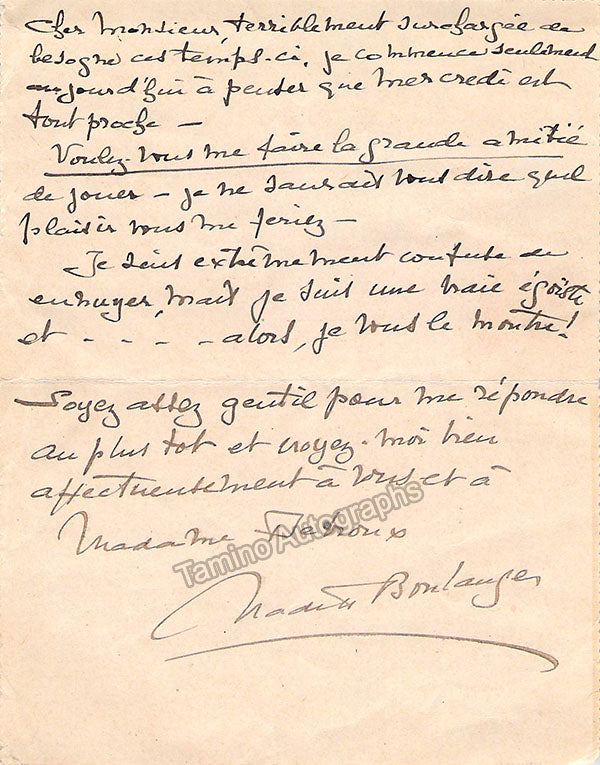 Cher Monsieur, terriblement surchargée de
besogne ces temps-ci, je commence seulement
aujourd'hui à penser que mercredi est
tout proche —
Voulez-vous me faire la grande amitié
de jouer — je ne saurais vous dire quel
plaisir vous me feriez —
Je suis extrêmement confuse de
ennuyer, mais je suis une vraie égoïste
et - . - . - alors, je vous le montre!
Soyez assez gentil pour me répondre
au plus tot et croyez-moi bien
affectueusement à vous et à
Madame
Tamino Autographs
Nadia Boulanger